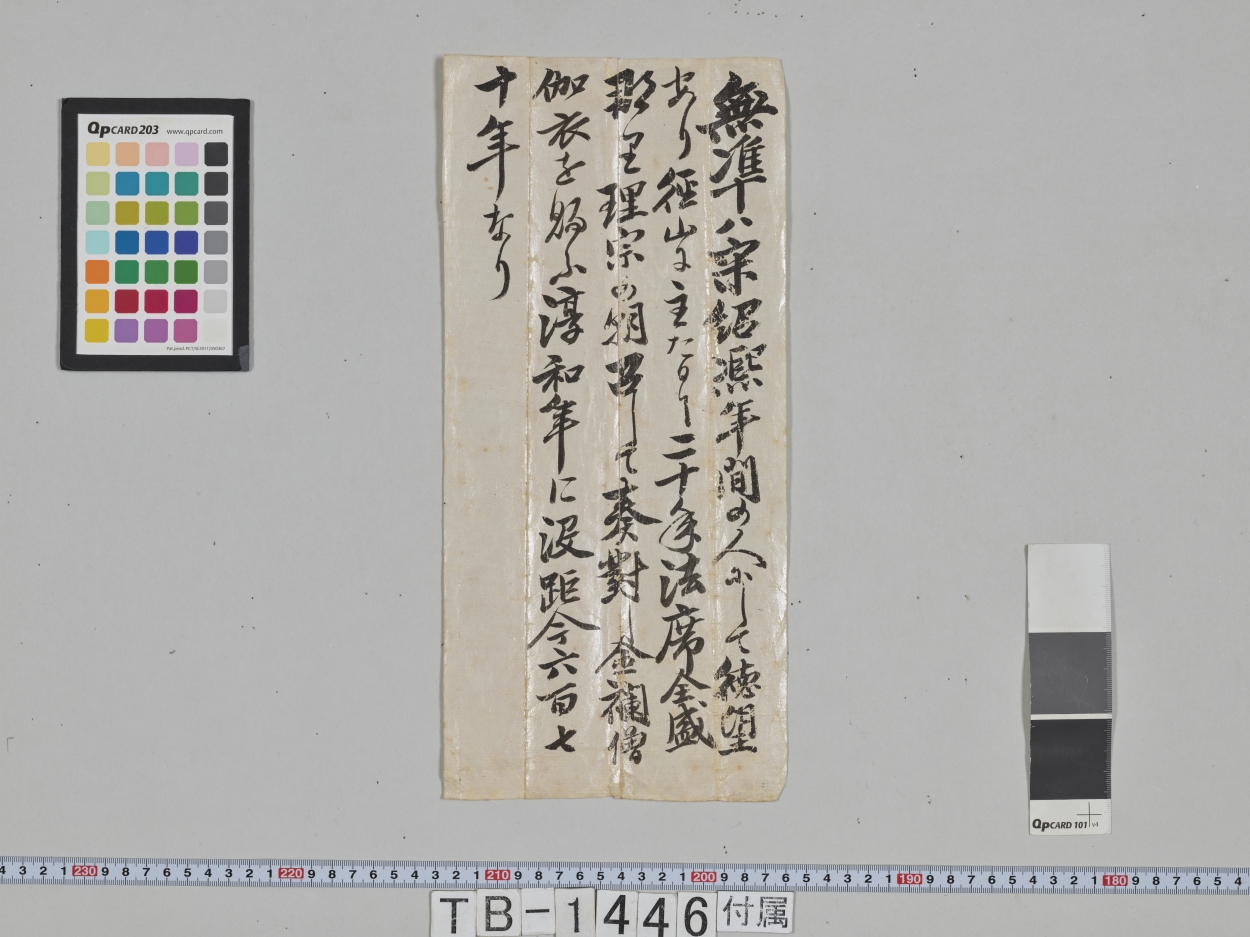 無凖ハ宋紹熙年間の人にして徳望
あり徑山に主たる事二十年法席全盛
理宗の朝召して奏對し金襴僧
伽衣を賜ふ淳和年に没距今六百七
十年なり
QpCARD 203 www.qpcard.com
QpCARD 101 v4
4 3 2 1 230 9 8 7 6 5 4 3 2 1 220 9 8 7 6 5 4 3 2 1 210 9 8 7 6 5 4 3 2 1 200 9 8 7 6 5 4 3 2 1 190 9 8 7 6 5 4 3 2 1 180 9 8 7 6 5 4
TB-1446付属